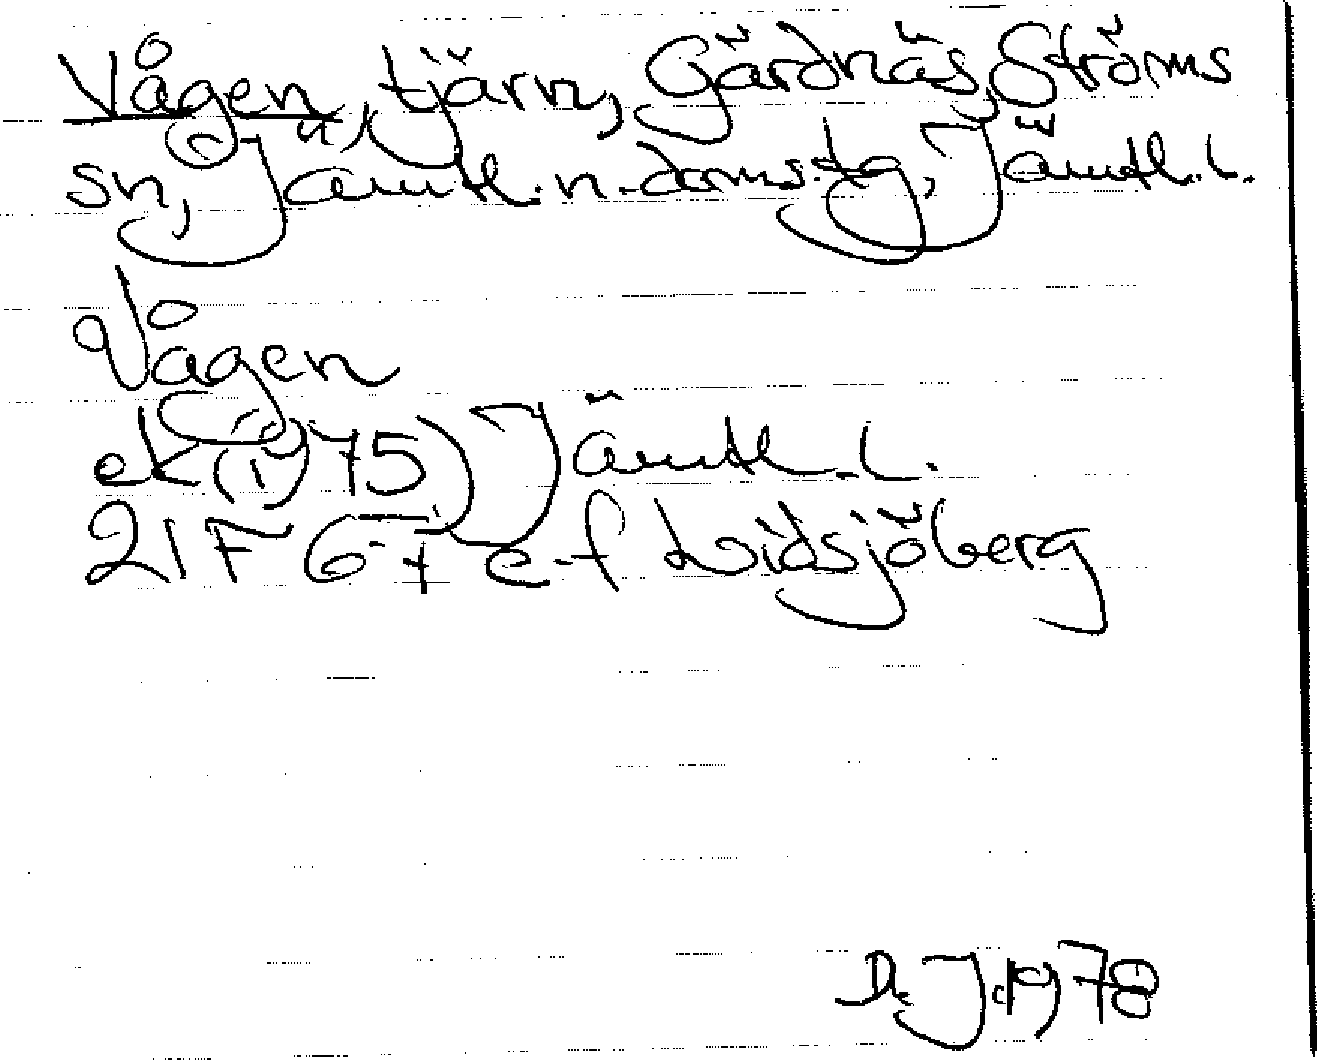 Vågen, tjärn, Gärdnäs, Ströms
sn, Jämtl. n. doms.tg, Jämtl. l.
Vågen
ek (1975) Jämtl. l.
21F 6-7 e-f Lidsjöberg
D. J. 1978